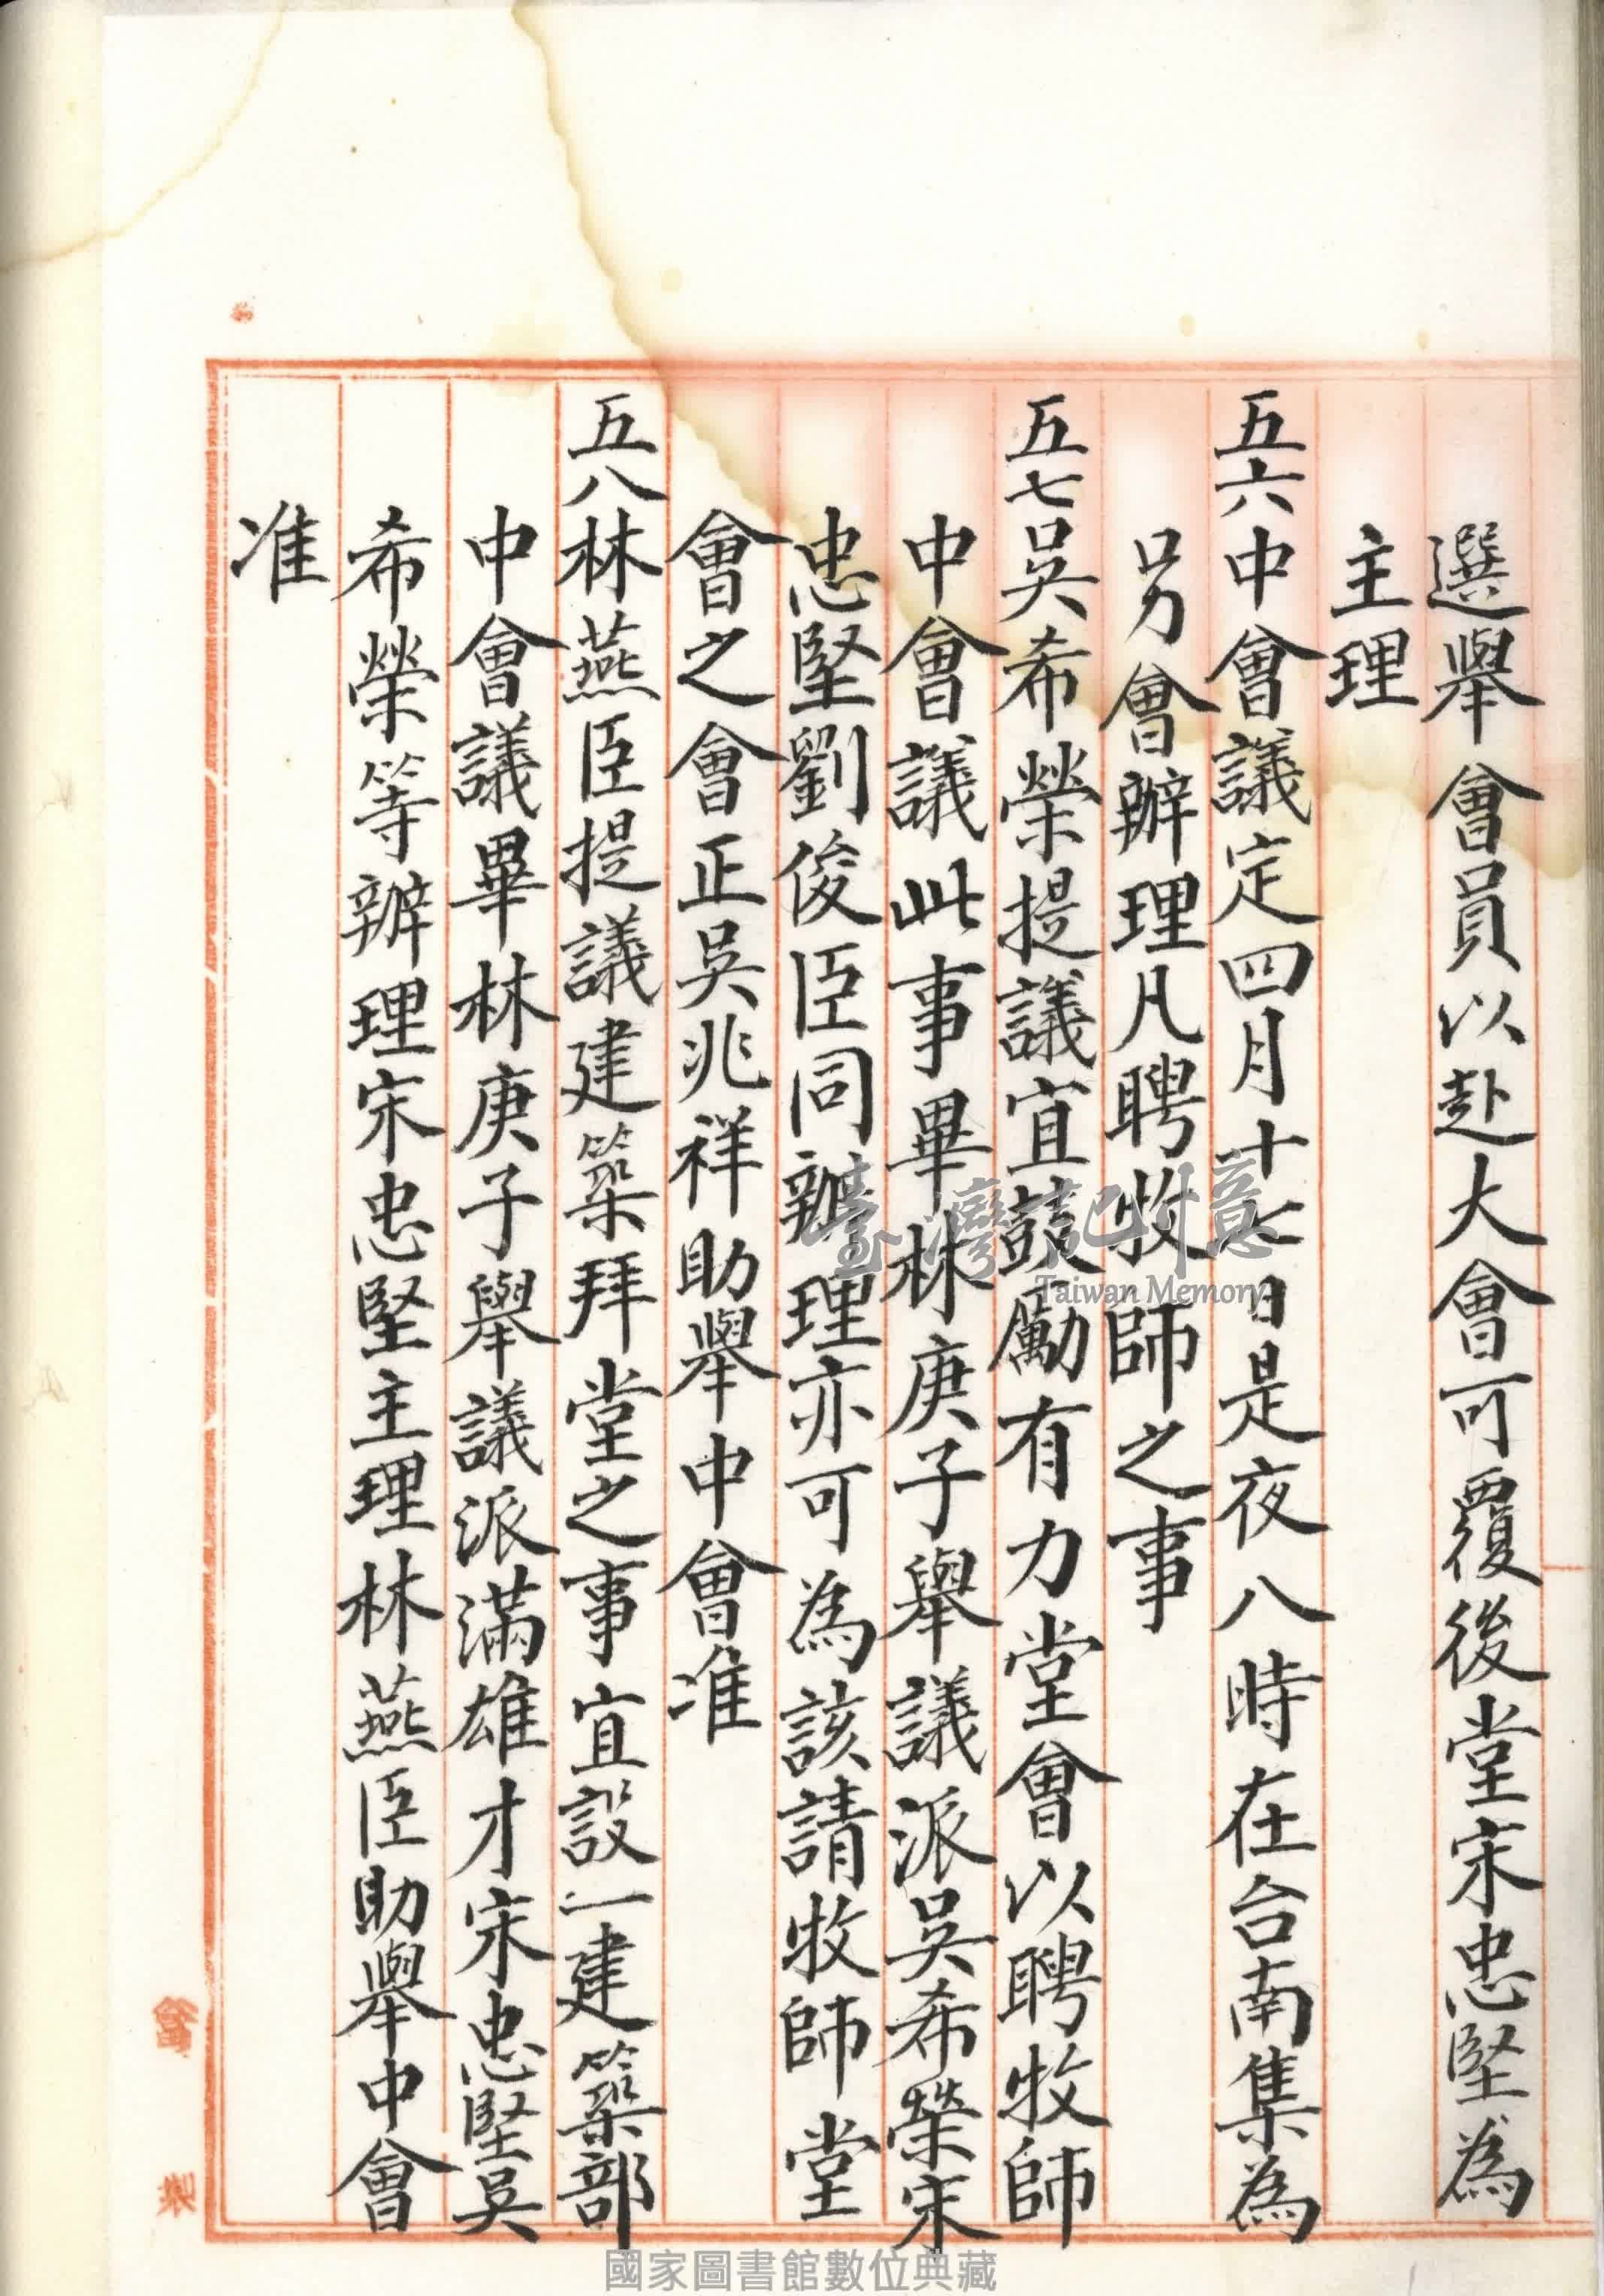 選舉會員以赴大會可覆後堂宋忠堅為
主理
五六中會議定四月十七日是夜八時在台南集為
另會辦理凡聘牧師之事
五七吳希榮提議宜鼓勵有力堂會以聘牧師
中會議此事畢林庚子舉議派吳希榮宋
忠堅劉俊臣同辦理亦可為該請牧師堂
會之會正吳兆祥助舉中會准
五八林燕臣提議建築拜堂之事宜設一建築部
中會議畢林庚子舉議派滿雄才宋忠堅吳
希榮等辦理宋忠堅主理林燕臣助舉中會
准
臺灣記憶
Taiwan Memory
國家圖書館數位典藏